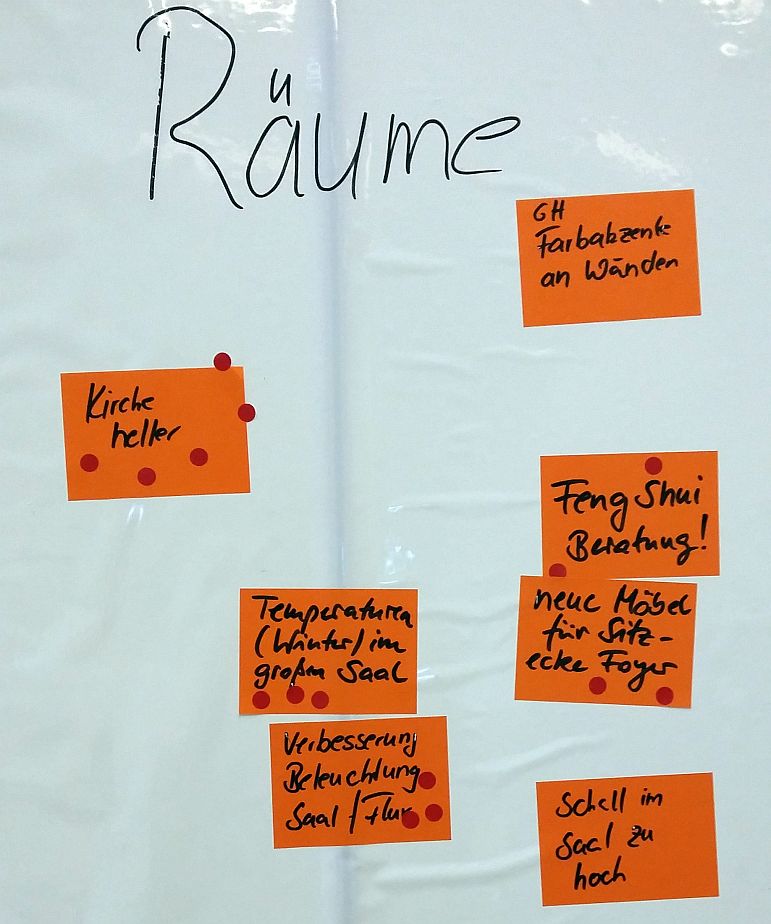 Räume
GH
Farbakzente
an Wänden
Kirche
heller
Feng Shui
Beratung!
Temperaturen
(Winter) im
großen Saal
neue Möbel
für Sitz-
ecke Foyer
Verbesserung
Beleuchtung
Saal / Flur
Schall im
Saal zu
hoch